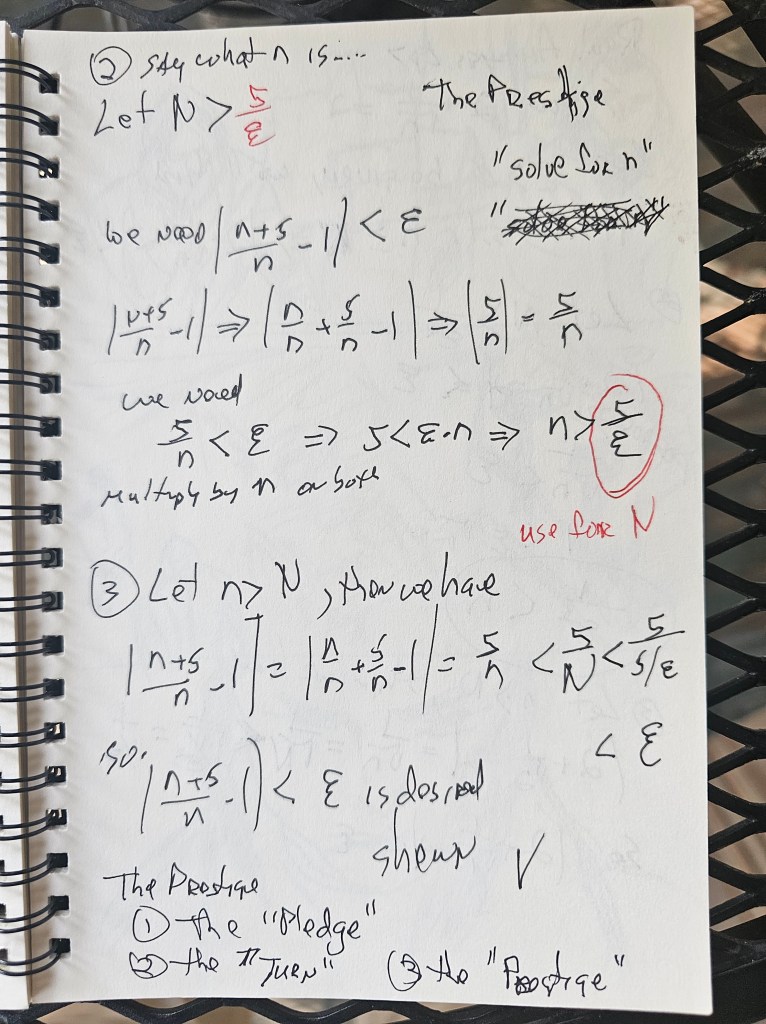 ② say what n is....
Let N > 5/ε
The Prestige
"solve for n"
we need |n+5/n - 1| < ε
|n+5/n - 1| ⇒ |n/n + 5/n - 1| ⇒ |5/n| = 5/n
we need
5/n < ε ⇒ 5 < ε·n ⇒ n > 5/ε
Multiply by n on both
use for N
③ Let n > N, then we have
|n+5/n - 1| = |n/n + 5/n - 1| = 5/n < 5/N < 5/5/ε
< ε
so. |n+5/n - 1| < ε is desired
shown √
The Prestige
① the "Pledge"
② the "Turn" ③ the "Prestige"